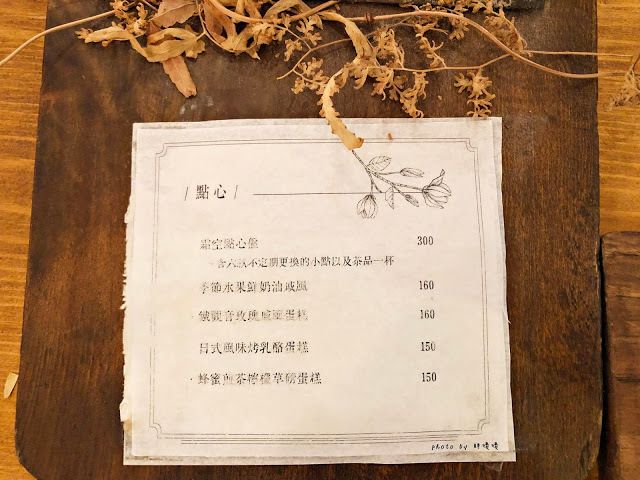 / 點心 /
霜空點心盤 300
·含六款不定期更換的小點以及茶品一杯
季節水果鮮奶油戚風 160
·鐵觀音玫瑰戚風蛋糕 160
日式風味烤乳酪蛋糕 150
·蜂蜜煎茶檸檬草磅蛋糕 150
photo by